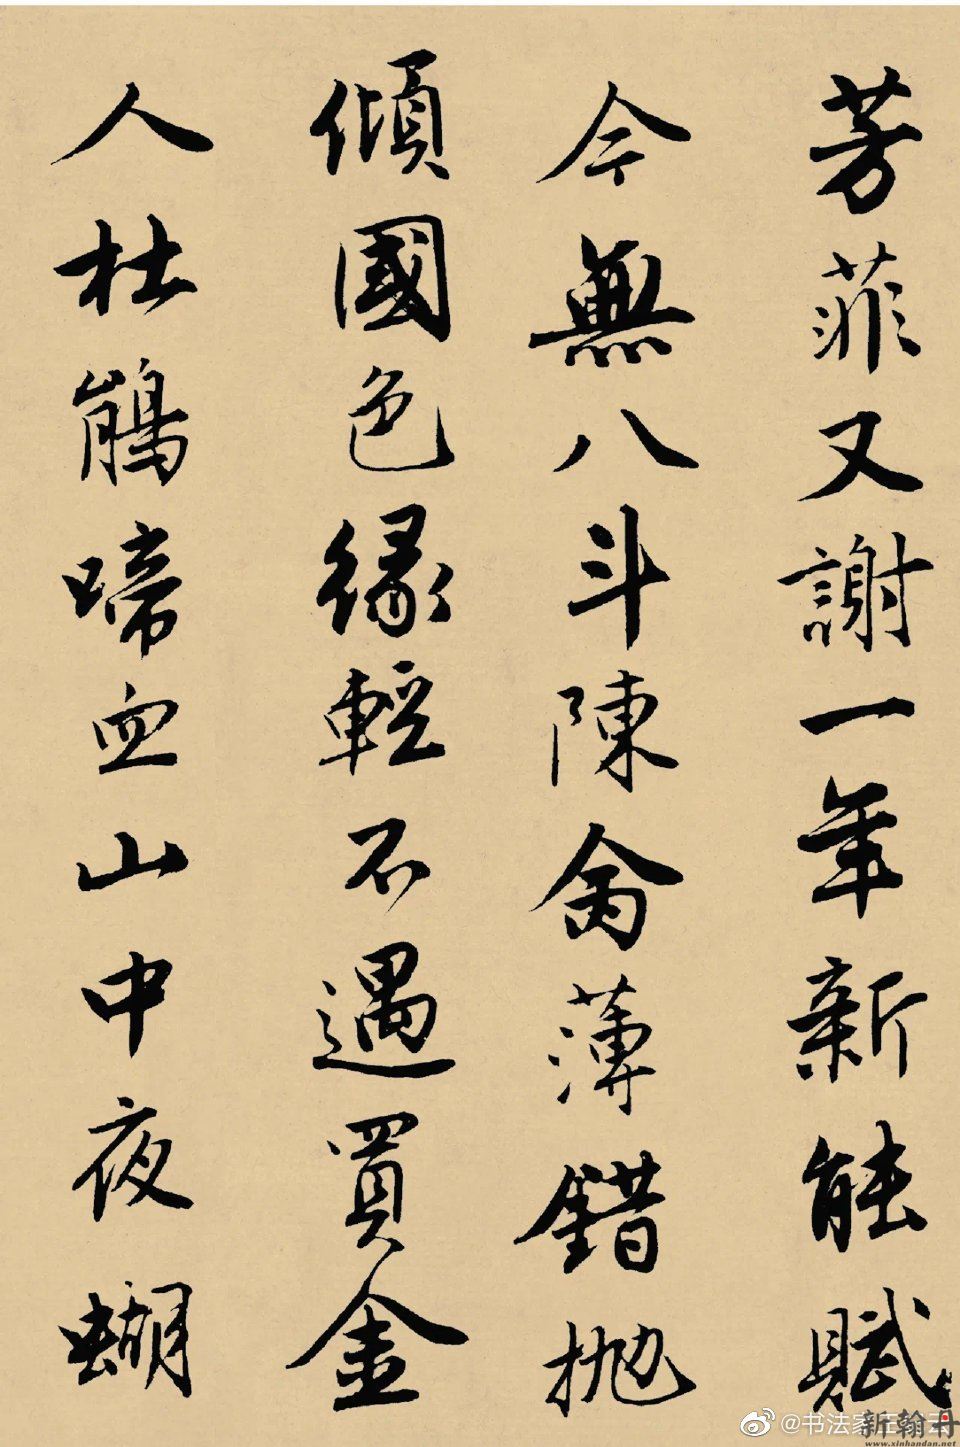 芳菲又謝一年新能賦
今無八斗陳禽薄錯抛
傾國色緣輕不遇買金
人杜鵑啼血山中夜蝴
@书法家
新翰丹
www.xinhandan.net